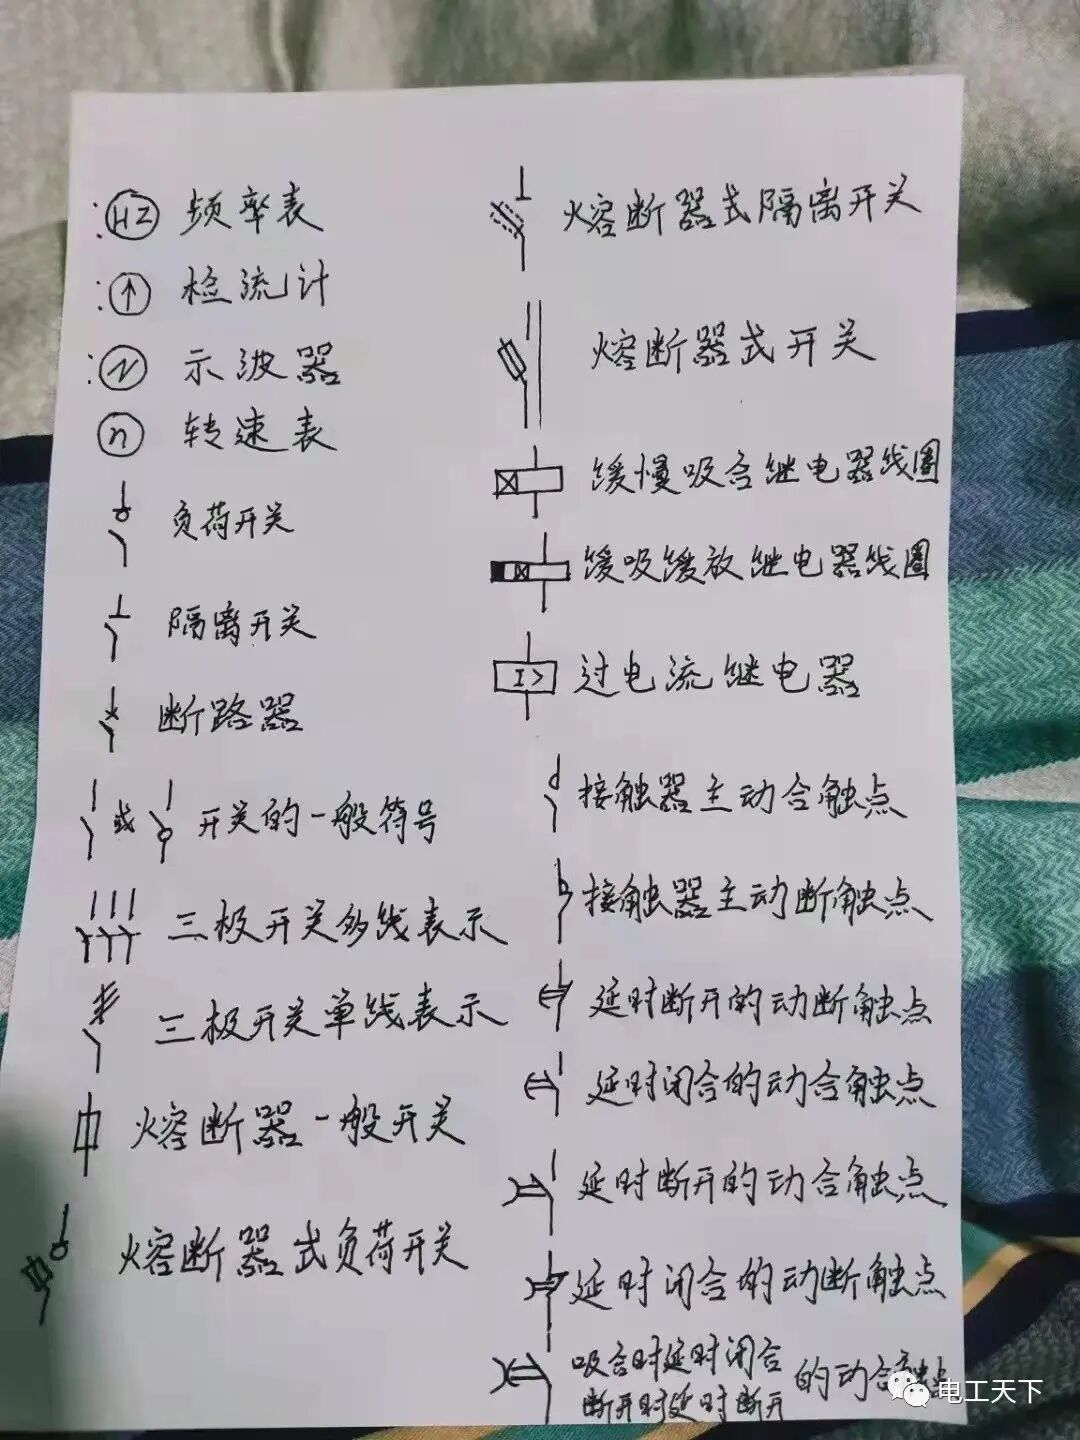 HZ 频率表
检流计
示波器
n 转速表
负荷开关
隔离开关
断路器
或 开关的一般符号
三极开关多线表示
三极开关单线表示
熔断器一般开关
熔断器式负荷开关
熔断器式隔离开关
熔断器式开关
缓慢吸合继电器线圈
缓吸缓放继电器线圈
I> 过电流继电器
接触器主动合触点
接触器主动断触点
延时断开的动断触点
延时闭合的动合触点
延时断开的动合触点
延时闭合的动断触点
吸合时延时闭合
断开时延时断开
的动合触点
电工天下